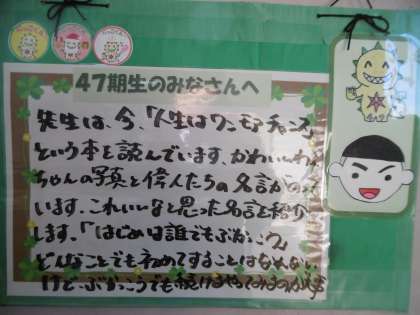 47期生のみなさんへ
先生は、今、「人生はワンモアチャンス
という本を読んでいます。かわいいわん
ちゃんの写真と偉人たちの名言がのって
います。これいいなと思った名言を紹介
します。「はじめは誰でもぶかっこう」
どんなことでも初めてすることはなれない
けど、ぶかっこうでも続けるやってみるのが大事